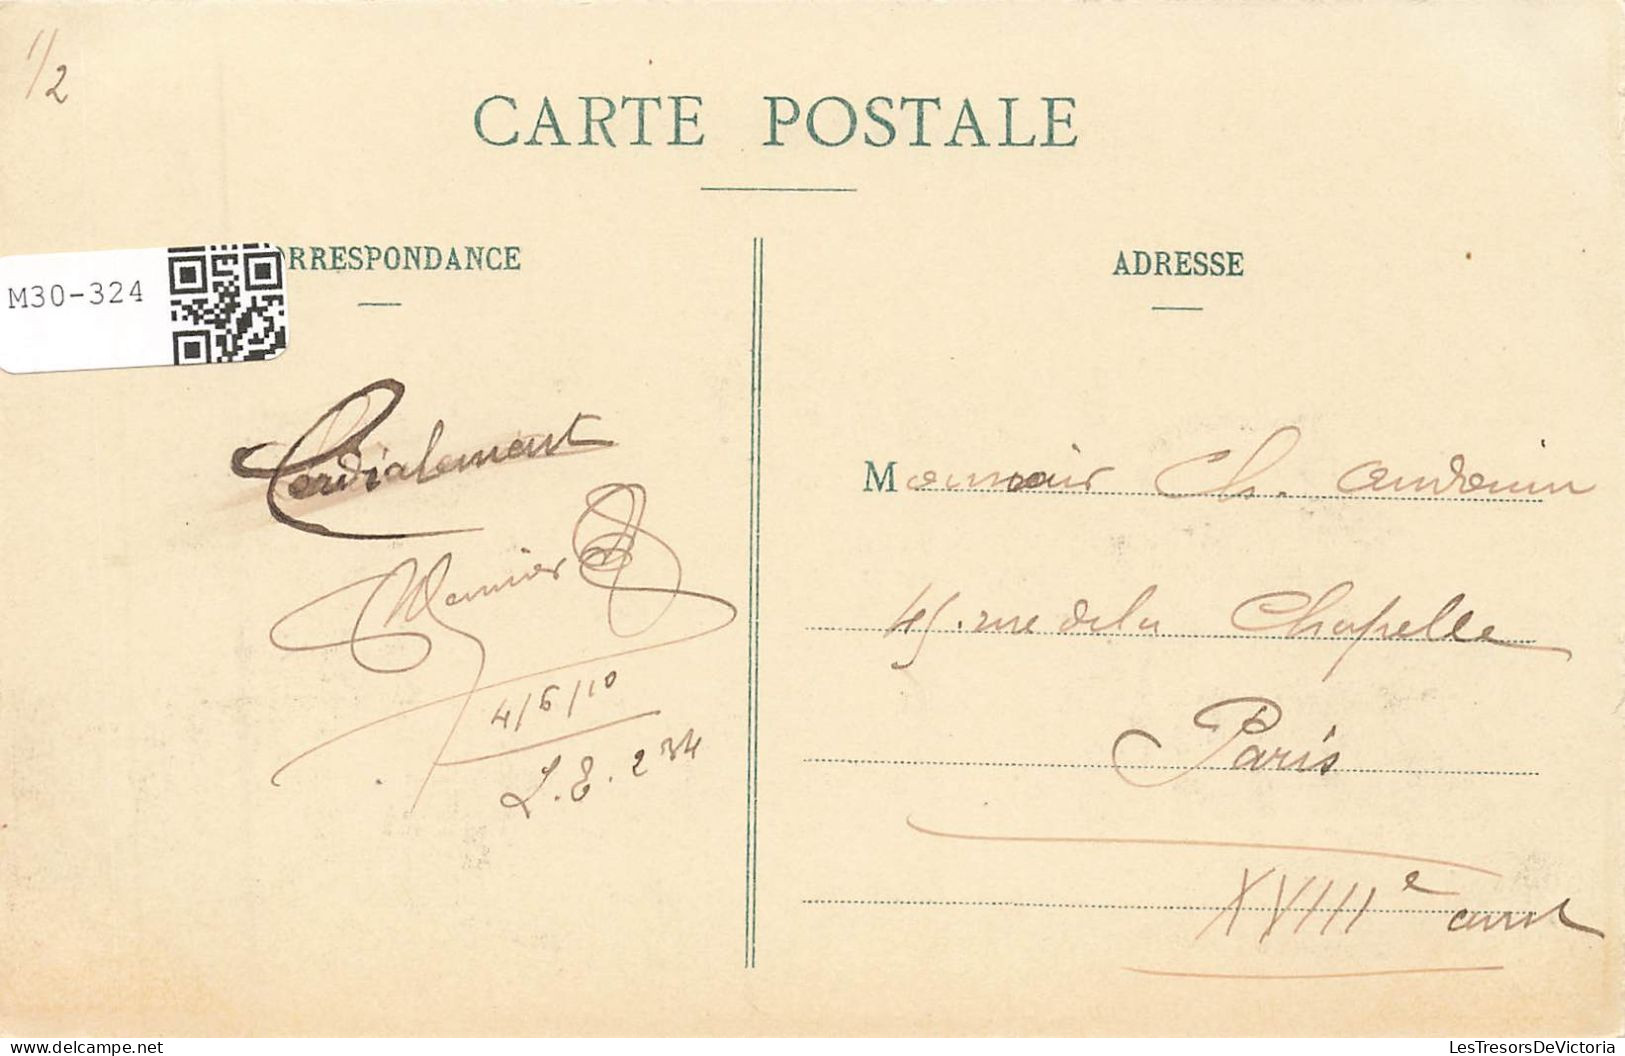 1/2
CARTE POSTALE
ORRESPONDANCE
ADRESSE
M30-324
Cordialement
4/6/10
L.E. 234
Monsieur Ch. Audouin
45. rue de la Chapelle
Paris
XVIIIe arrt
www.delcampe.net
LesTresorsDeVictoria